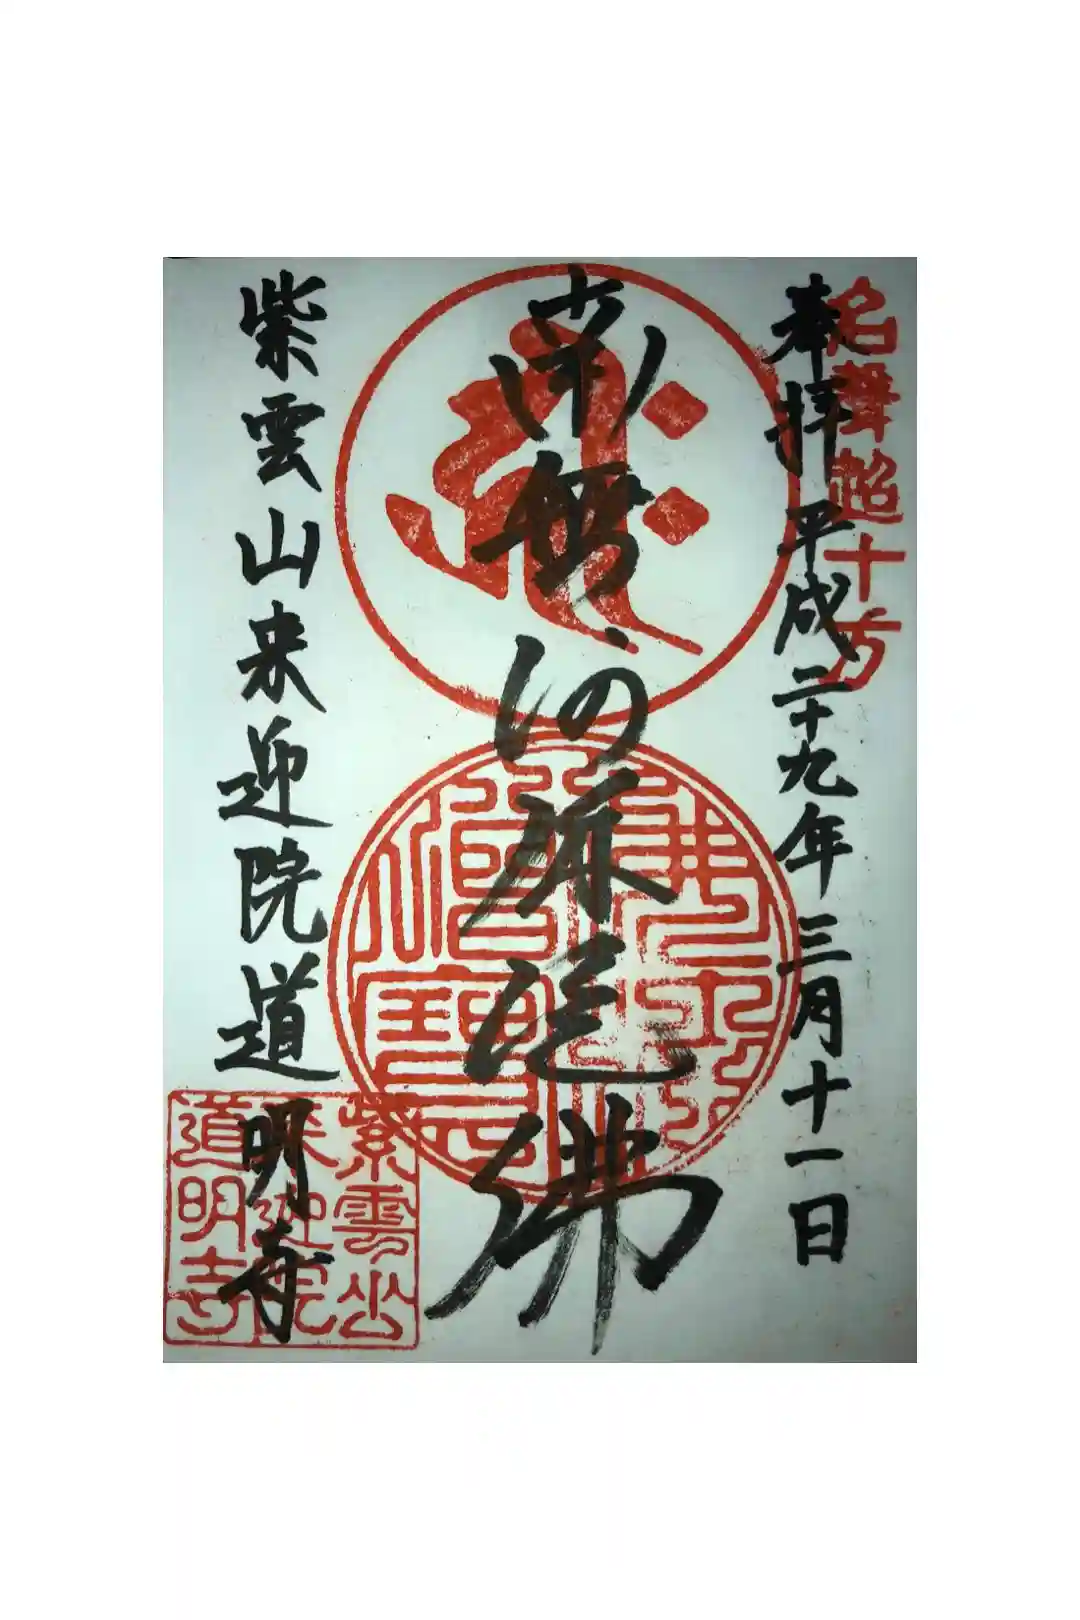 名聲超十方
奉拝 平成二十九年三月十一日
南無阿弥陀佛
佛法僧寶
紫雲山来迎院道明寺
紫雲山
来迎院
道明寺